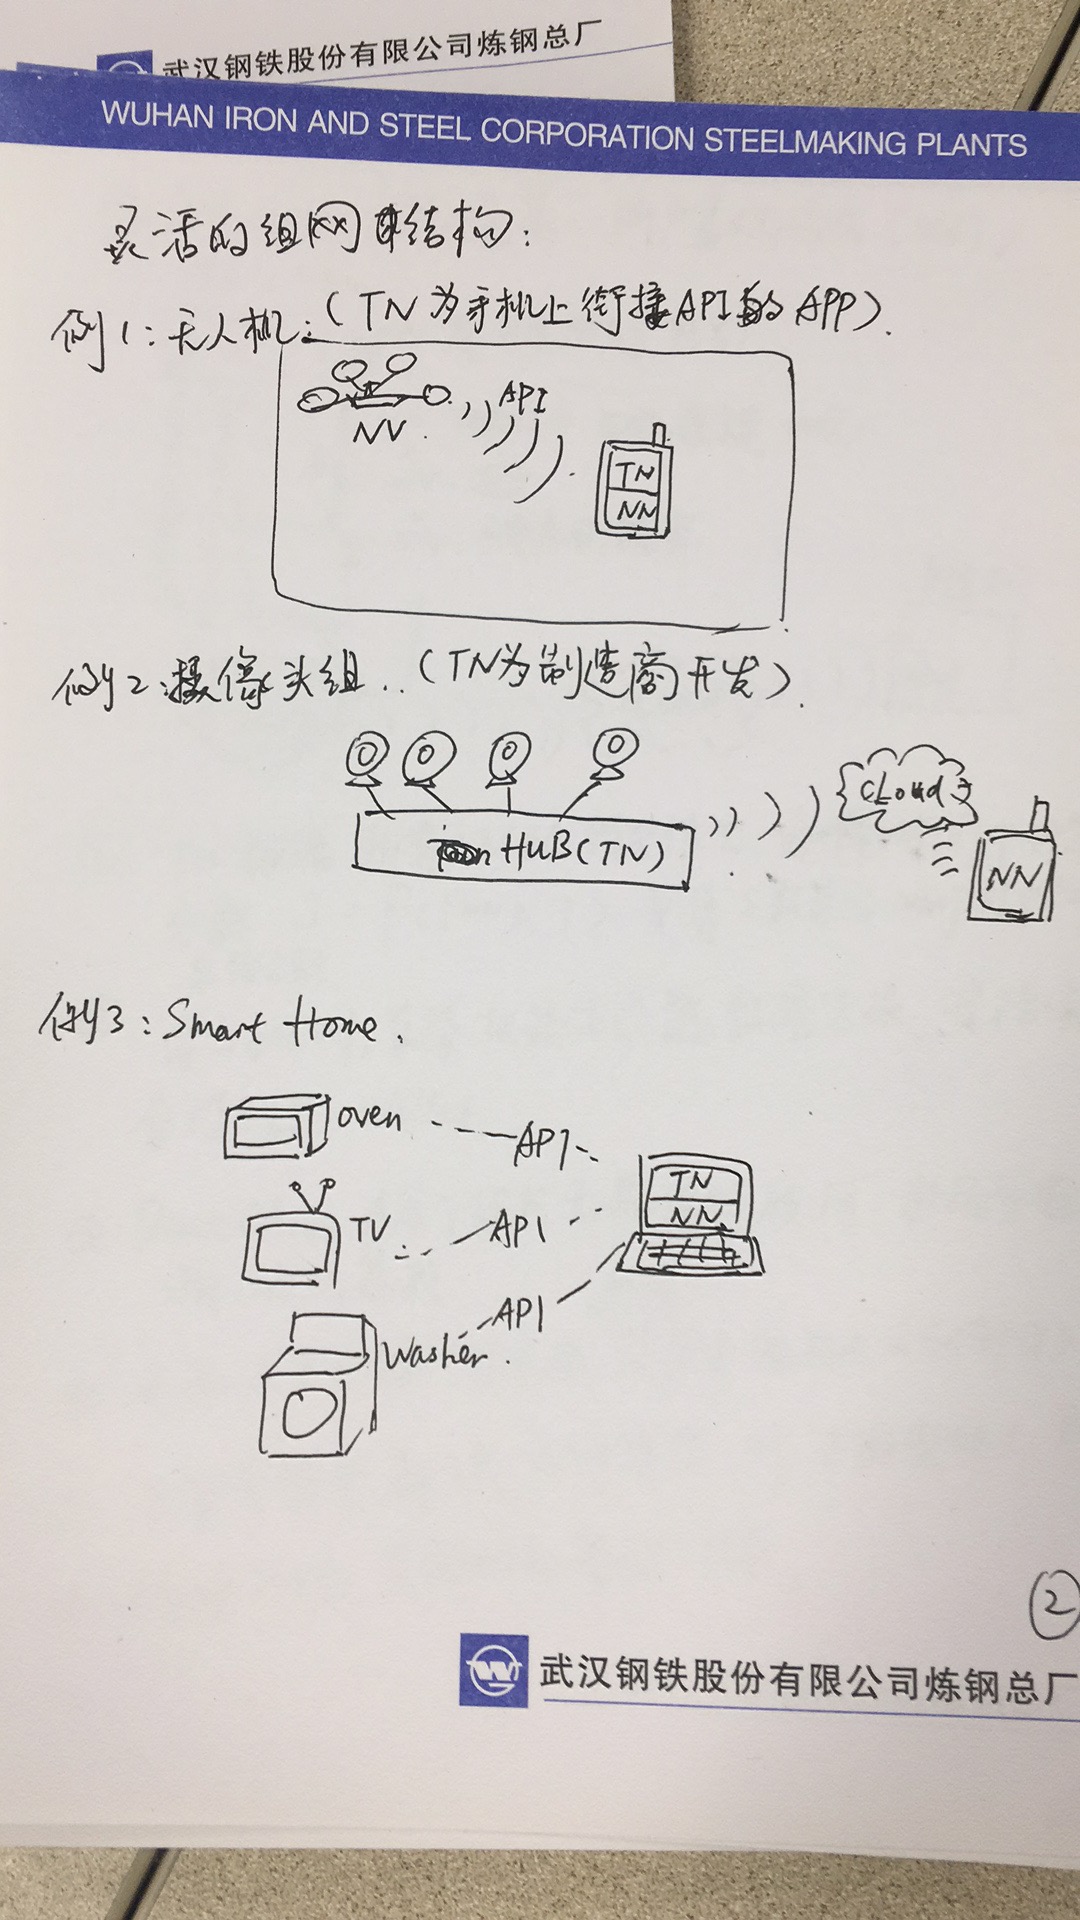 武汉钢铁股份有限公司炼钢总厂
WUHAN IRON AND STEEL CORPORATION STEELMAKING PLANTS
灵活的组网结构:
例1:无人机:(TN为手机上衔接API的APP).
API
NV
TN
NN
例2:摄像头组..(TN为制造商开发).
Cloud
HUB(TN)
NN
例3:Smart Home.
oven
API
TN
NN
TV
API
API
Washer.
2
武汉钢铁股份有限公司炼钢总厂